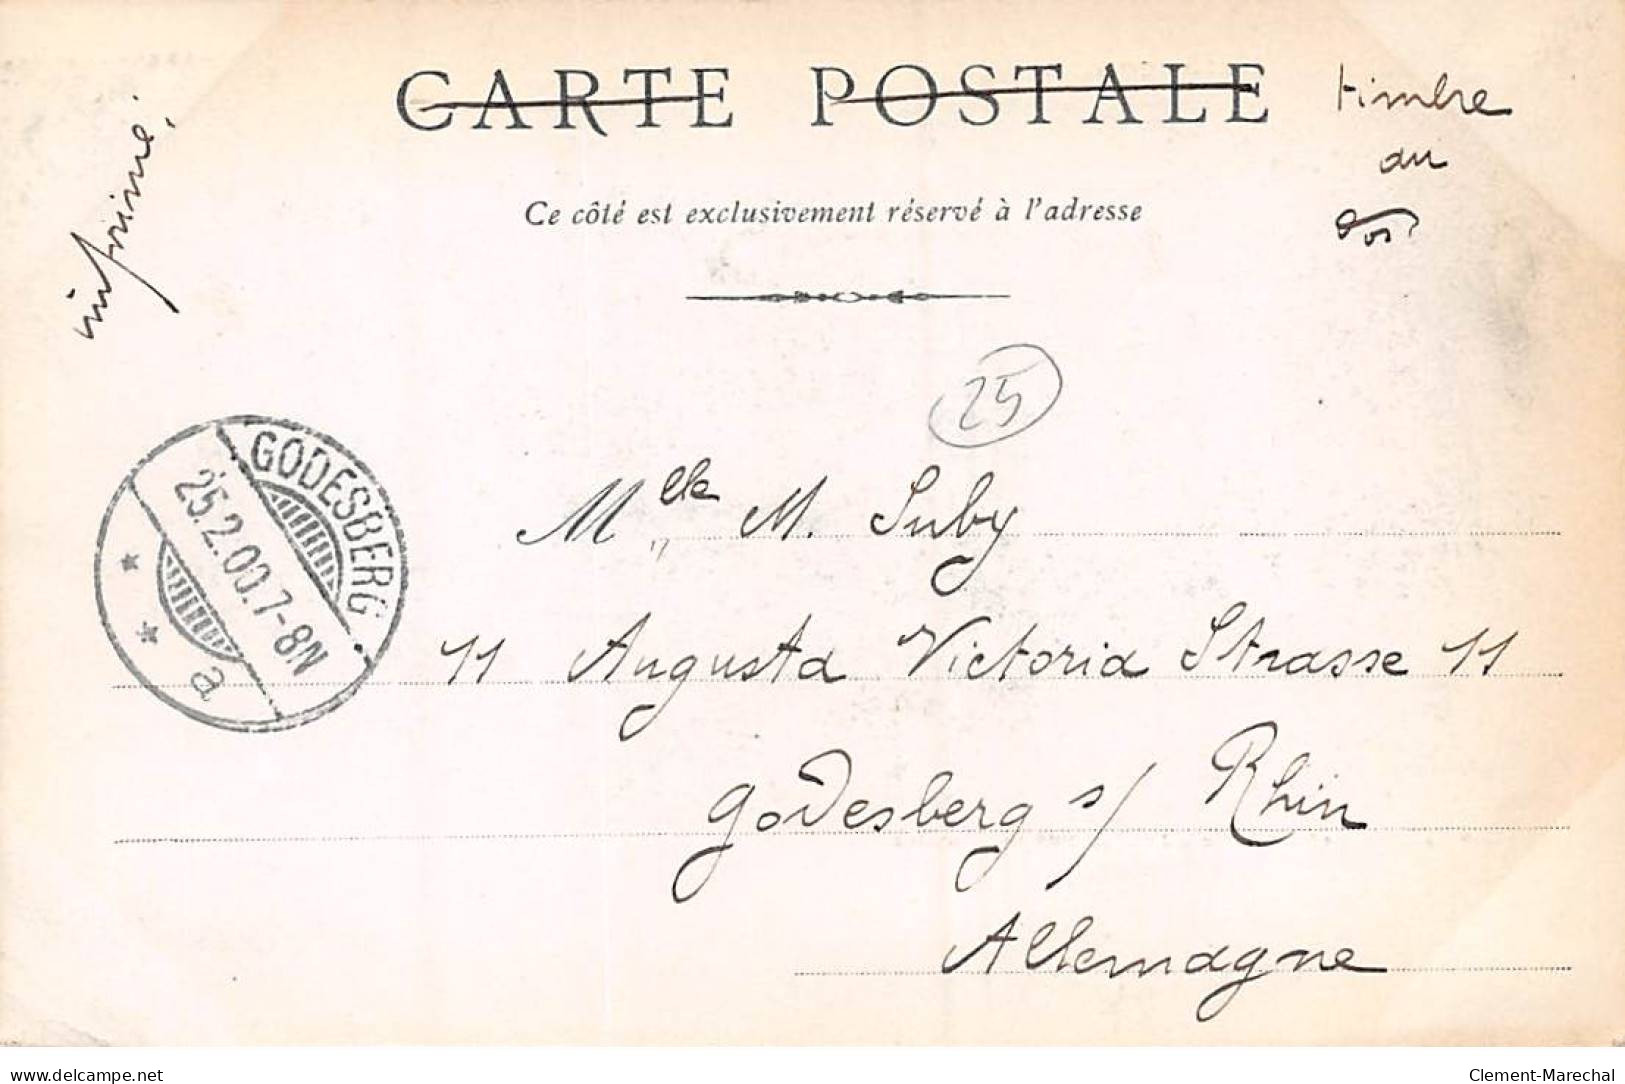 CARTE POSTALE
timbre
au
dos
imprimé.
Ce côté est exclusivement réservé à l'adresse
25
GODESBERG
25.2.00.7-8N
a
Mlle M. Suby
11 Augusta Victoria Strasse 11
Godesberg s/ Rhin
Allemagne
www.delcampe.net
Clement-Marechal